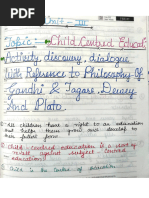 Unit - III
Topic - Child Centred Educat
Activity, discovery, dialogue
With Reference to Philosophy Of
Gandhi & Tagore, Dewey
And Plato.
All children have a right to an education
that helps them grow and develop to
their fullest
Child - centred education is a sort of
revolt against subject centred
education.
Child is the centre of